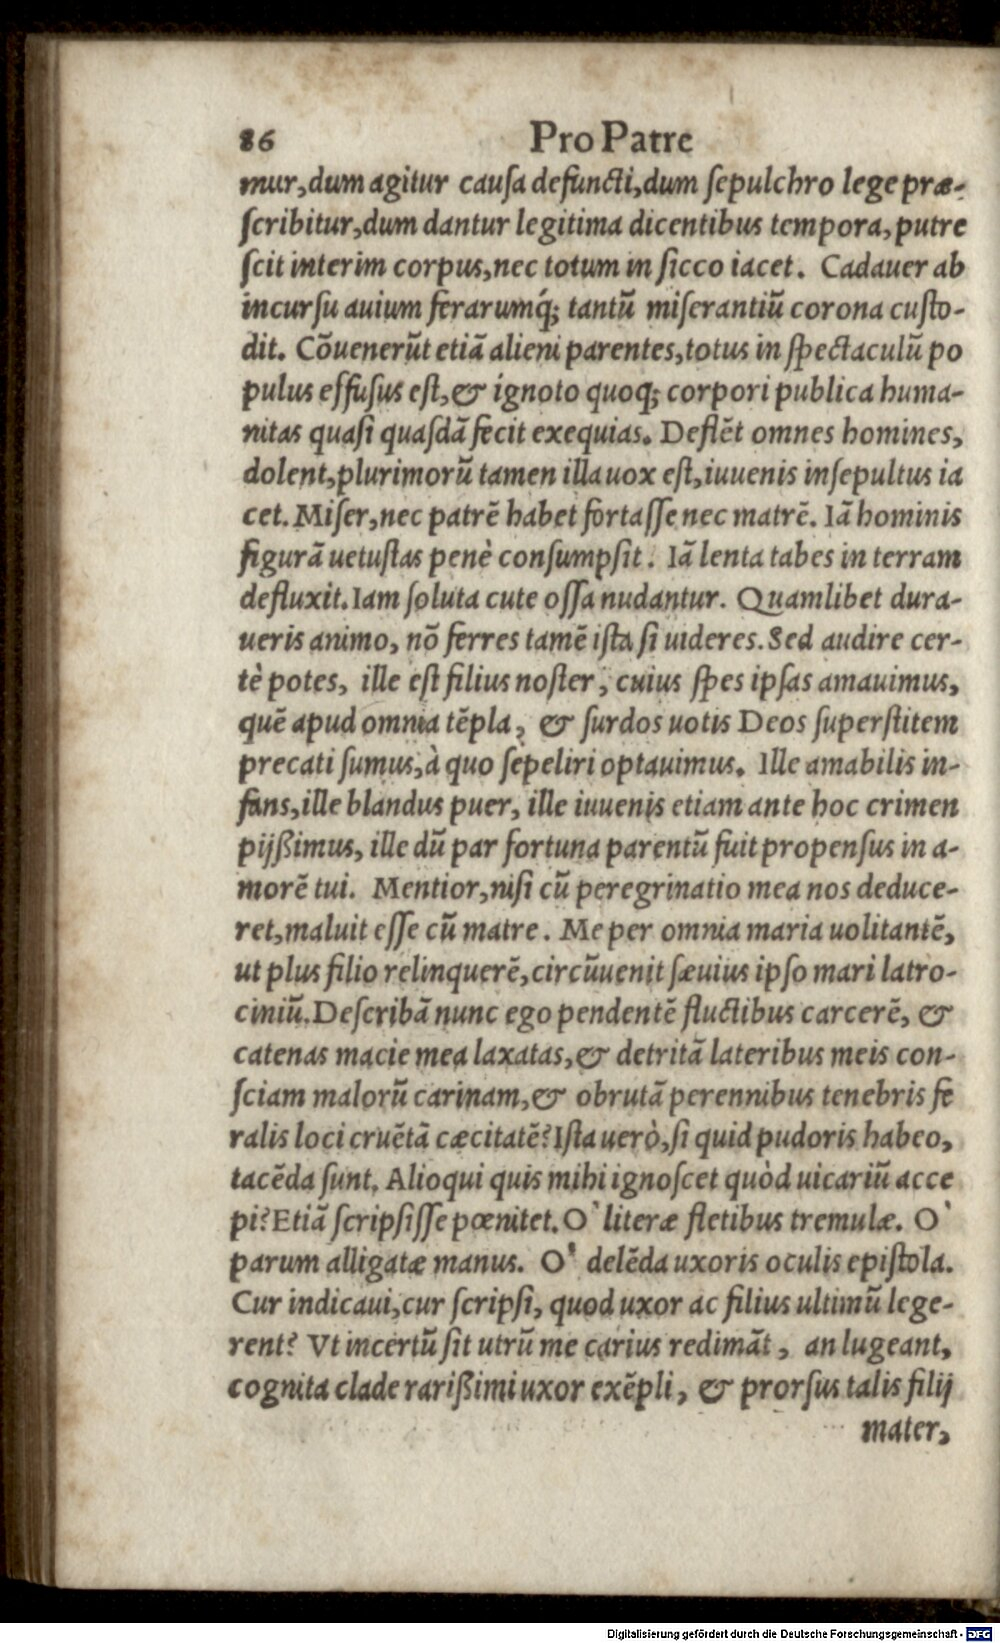 86 Pro Patre
mur, dum agitur cauſa defuncti, dum ſepulchro lege præ-
ſcribitur, dum dantur legitima dicentibus tempora, putre
ſcit interim corpus, nec totum in ſicco iacet. Cadauer ab
incurſu auium ferarumq́; tantũ miſerantiũ corona cuſto-
dit. Cõuenerũt etiã alieni parentes, totus in ſpectaculũ po
pulus effuſus eſt, & ignoto quoq; corpori publica huma-
nitas quaſi quaſdã fecit exequias. Deflẽt omnes homines,
dolent, plurimorũ tamen illa uox eſt, iuuenis inſepultus ia
cet. Miſer, nec patrẽ habet fortaſſe nec matrẽ. Iã hominis
figurã uetuſtas penè conſumpſit. Iã lenta tabes in terram
defluxit. Iam ſoluta cute oſſa nudantur. Quamlibet dura-
ueris animo, nõ ferres tamẽ iſta ſi uideres. Sed audire cer-
tè potes, ille eſt filius noſter, cuius ſpes ipſas amauimus,
quẽ apud omnia tẽpla, & ſurdos uotis Deos ſuperſtitem
precati ſumus, à quo ſepeliri optauimus. Ille amabilis in-
fans, ille blandus puer, ille iuuenis etiam ante hoc crimen
pijßimus, ille dũ par fortuna parentũ fuit propenſus in a-
morẽ tui. Mentior, niſi cũ peregrinatio mea nos deduce-
ret, maluit eſſe cũ matre. Me per omnia maria uolitantẽ,
ut plus filio relinquerẽ, circũuenit ſæuius ipſo mari latro-
ciniũ. Deſcribã nunc ego pendentẽ fluctibus carcerẽ, &
catenas macie mea laxatas, & detritã lateribus meis con-
ſciam malorũ carinam, & obrutã perennibus tenebris fe
ralis loci cruẽtã cæcitatẽ? Iſta uerò, ſi quid pudoris habeo,
tacẽda ſunt. Alioqui quis mihi ignoſcet quòd uicariũ acce
pi? Etiã ſcripſiſſe pœnitet. O` literæ fletibus tremulæ. O`
parum alligatæ manus. O` delẽda uxoris oculis epiſtola.
Cur indicaui, cur ſcripſi, quod uxor ac filius ultimũ lege-
rent? Vt incertũ ſit utrũ me carius redimãt, an lugeant,
cognita clade rarißimi uxor exẽpli, & prorſus talis filij
mater,
Digitalisierung gefördert durch die Deutsche Forschungsgemeinschaft - DFG